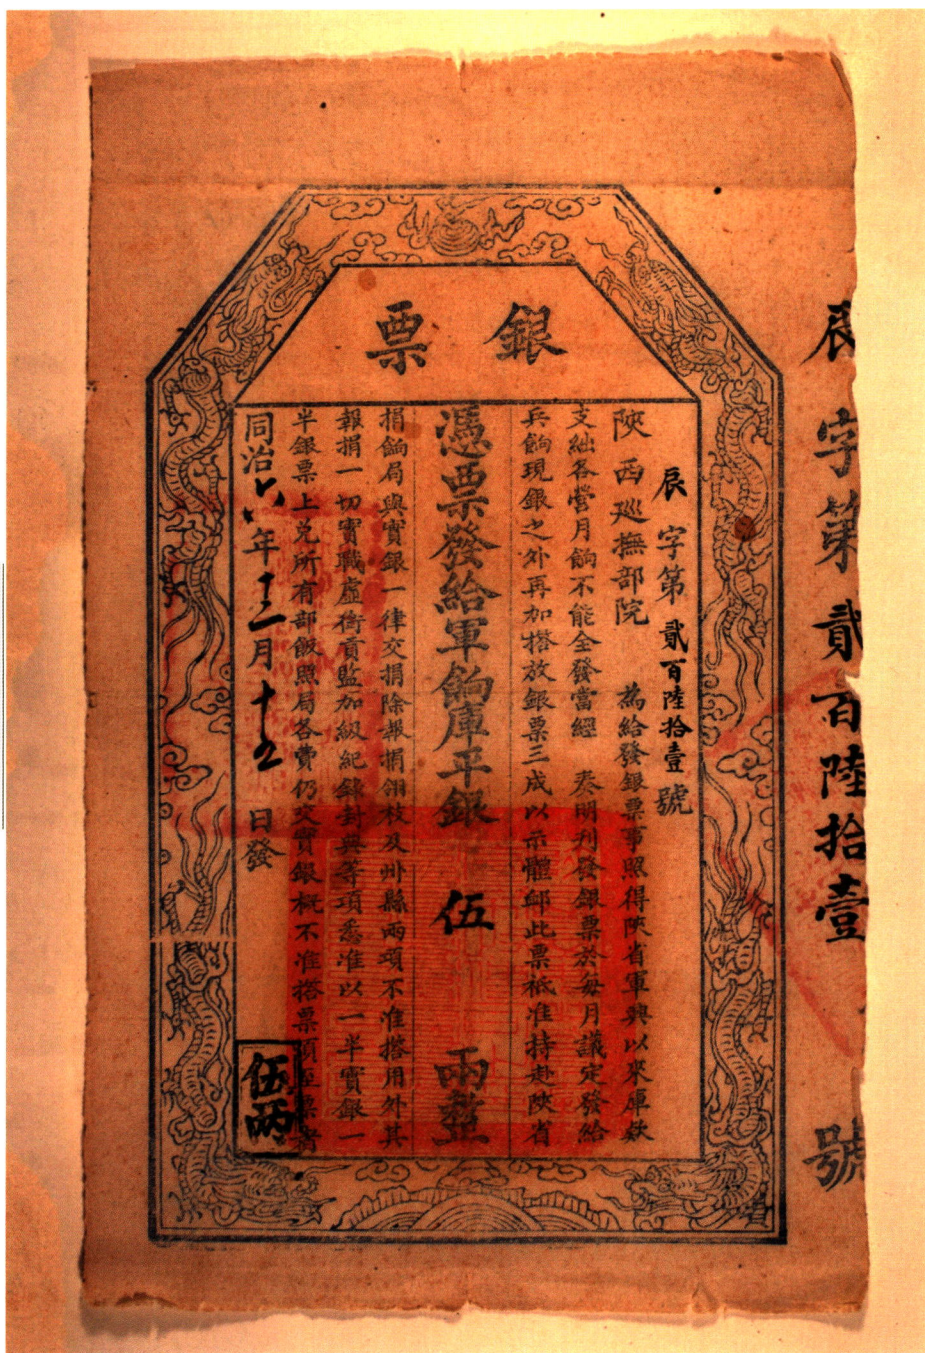 辰字第貳百陸拾壹號
銀票
辰字第貳百陸拾壹號
陝西巡撫部院 為給發銀票事照得陝省軍興以來庫欵
支絀各營月餉不能全發當經 奏明刋發銀票於每月議定發給
兵餉現銀之外再加搭放銀票三成以示體䘏此票祗准持赴陝省
憑票發給軍餉庫平銀 伍 兩整
捐餉局與實銀一律交捐除報捐翎枝及州縣兩項不准搭用外其
報捐一切實職虛銜貢監加級紀錄封典等項悉准以一半實銀一
半銀票上兌所有部飯照局各費仍交實銀概不准搭票須至票者
同治六年十二月十五日發
伍兩